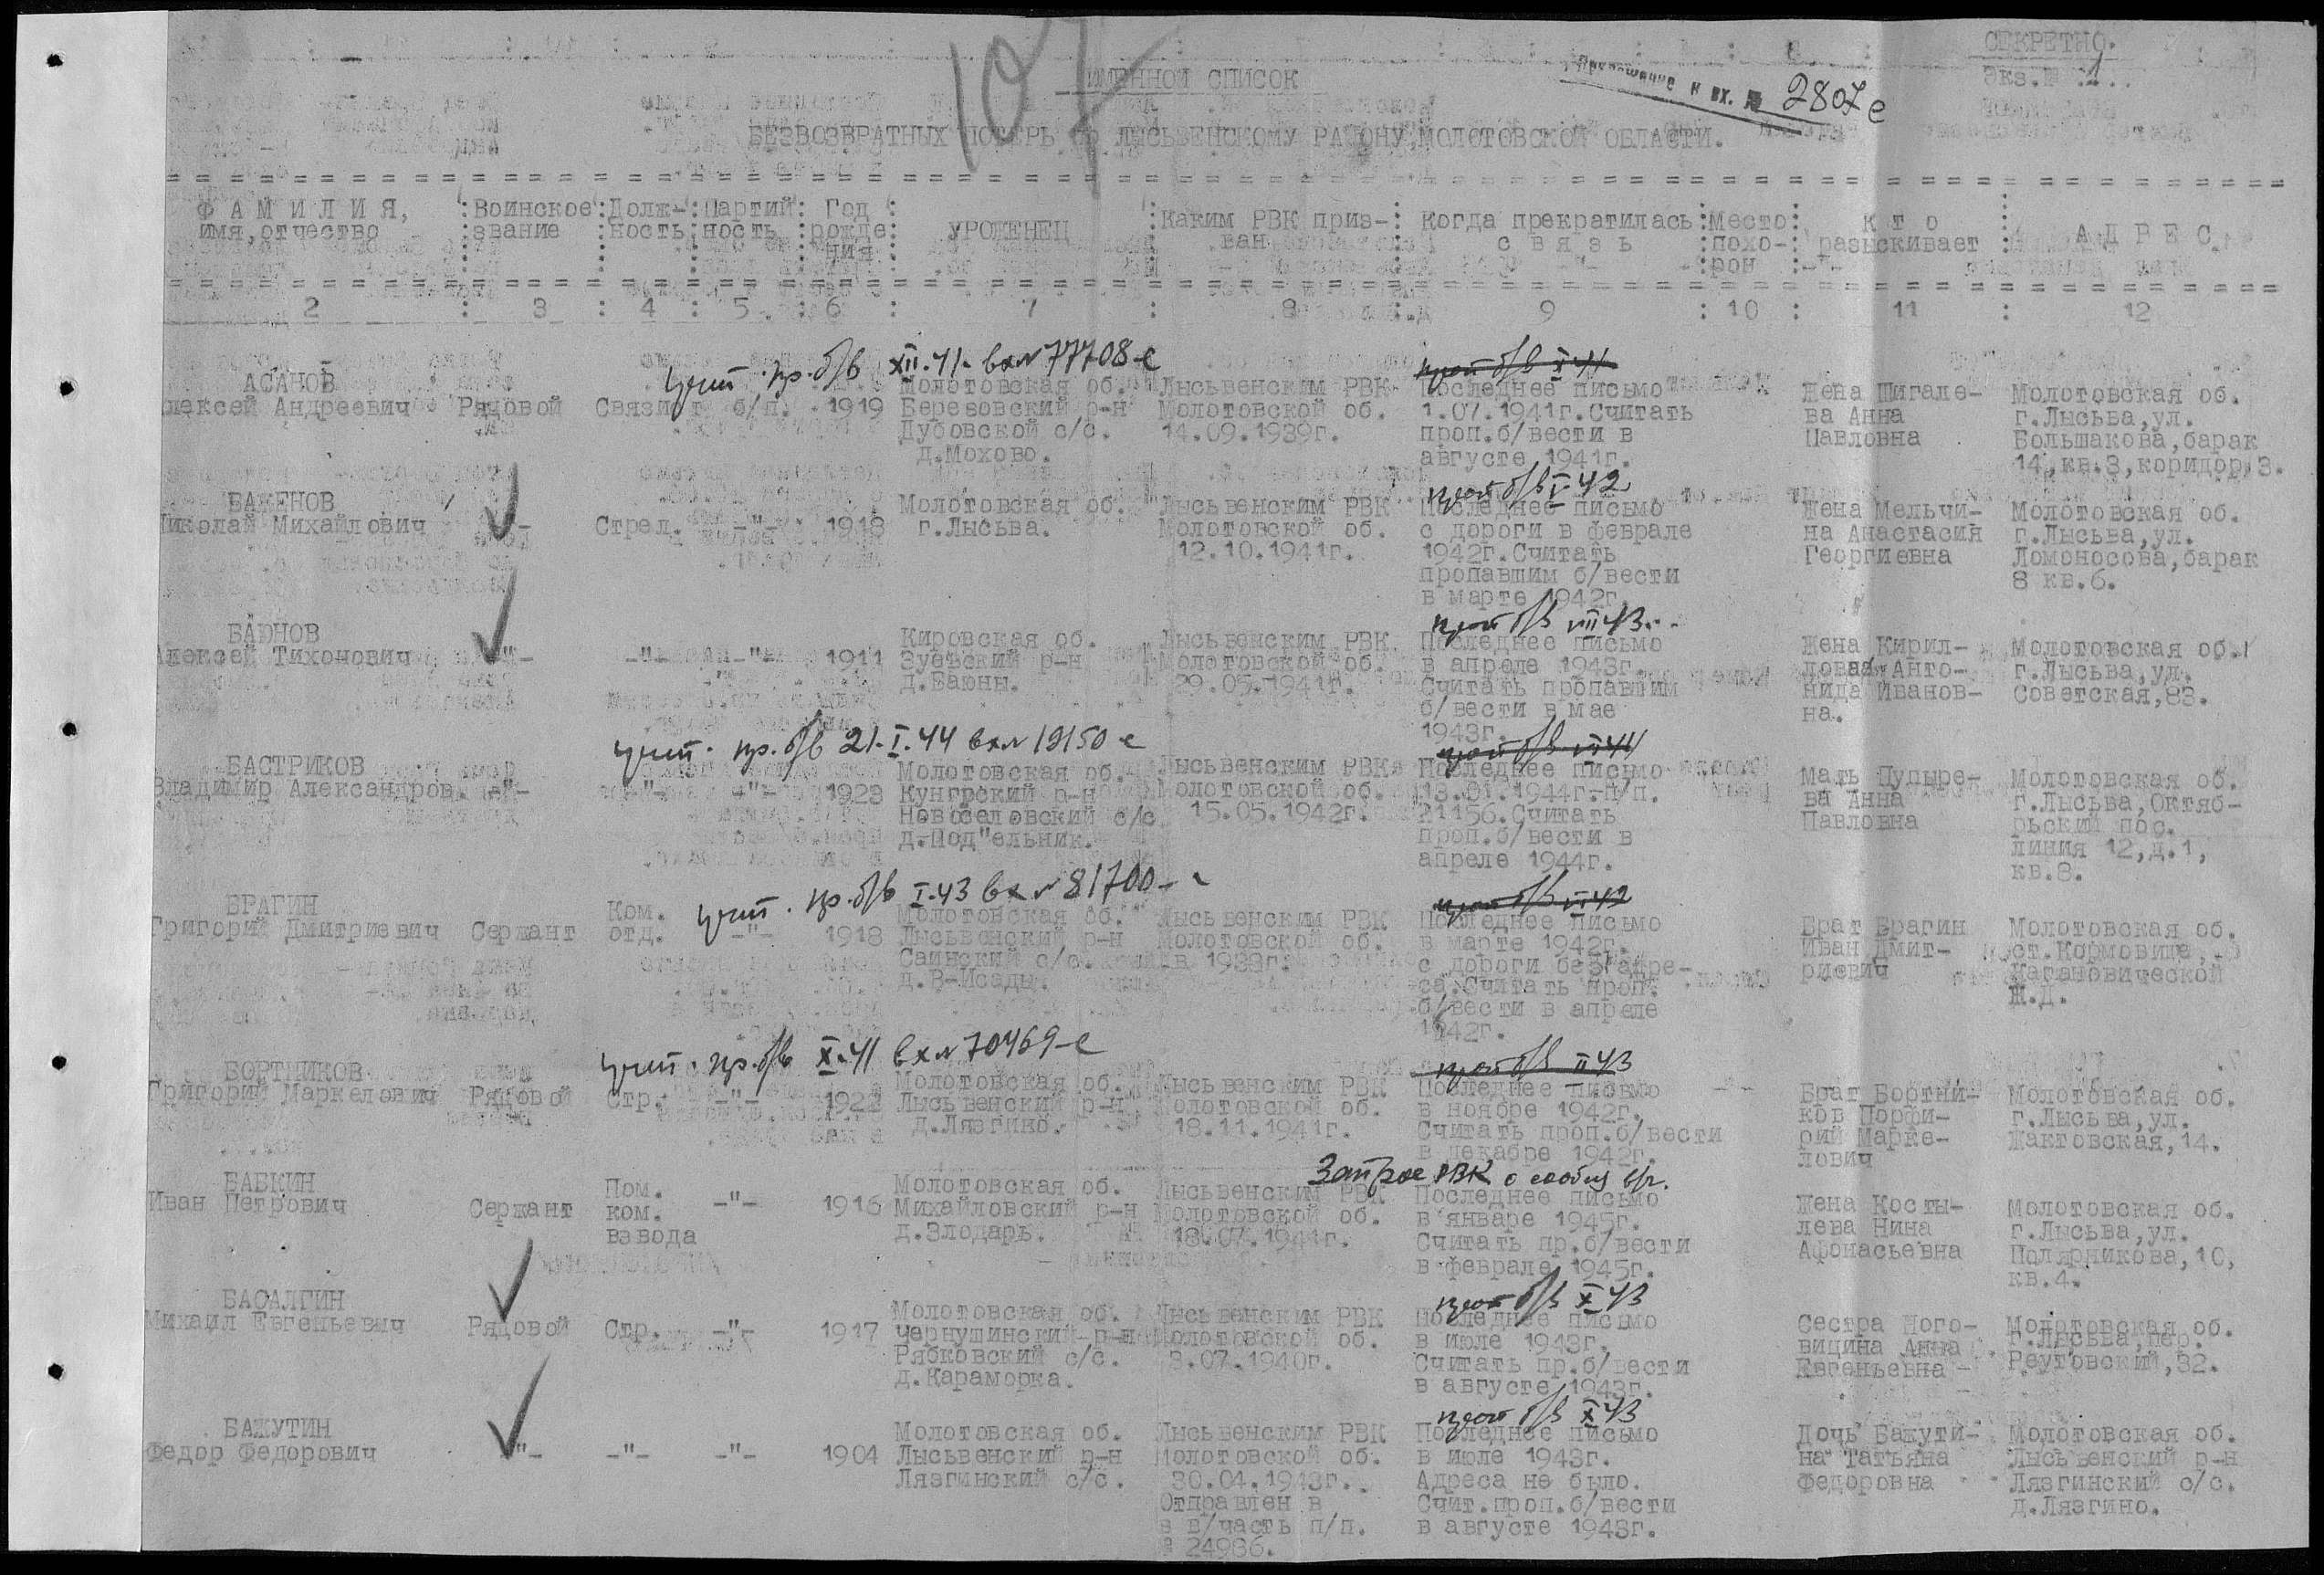 107
СЕКРЕТНО.
Экз.№ 1..
ИМЕННОЙ СПИСОК
Приложение к вх. № 2807с
БЕЗВОЗВРАТНЫХ ПОТЕРЬ ПО ЛЫСЬВЕНСКОМУ РАЙОНУ, МОЛОТОВСКОЙ ОБЛАСТИ.
ФАМИЛИЯ, имя,отчество : Воинское звание : Долж-ность : Партий-ность : Год рожде ния : УРОЖЕНЕЦ : Каким РВК приз-ван : Когда прекратилась связь : Место похо-рон : кто разыскивает : АДРЕС.
2 : 3 : 4 : 5 : 6 : 7 : 8 : 9 : 10 : 11 : 12
учт. пр. б/в XII.41. вх№77708-с
проп б/в X 41
АСАНОВ
лексей Андреевич Рядовой Связист б/п. 1919
Молотовская об.
Березовский р-н
Дубовской с/с.
д.Мохово.
Лысьвенским РВК
Молотовской об.
14.09.1939г.
Последнее письмо
1.07.1941г.Считать
проп.б/вести в
августе 1941г.
Жена Шигале-
ва Анна
Павловна
Молотовская об.
г.Лысьва,ул.
Большакова,барак
14,кв.3,коридор 3.
проп б/в V-42
БАЖЕНОВ
Николай Михайлович -"- Стрел. -"- 1918
Молотовская об.
г.Лысьва.
Лысьвенским РВК
Молотовской об.
12.10.1941г.
Последнее письмо
с дороги в феврале
1942г.Считать
пропавшим б/вести
в марте 1942г.
Жена Мельчи-
на Анастасия
Георгиевна
Молотовская об.
г.Лысьва,ул.
Ломоносова,барак
8 кв.6.
проп б/в VII 43
БАЮНОВ
Алексей Тихонович -"- -"- -"- 1911
Кировская об.
Зуевский р-н
д.Баюны.
Лысьвенским РВК
Молотовской об.
29.05.1941г.
Последнее письмо
в апреле 1943г.
Считать пропавшим
б/вести в мае
1943г.
Жена Кирил-
ловая Анто-
нида Иванов-
на.
Молотовская об.
г.Лысьва,ул.
Советская,83.
учт. пр. б/в 21.I.44 вх№19150-с
проп б/в VII 44
БАСТРИКОВ
Владимир Александров. -"- -"- -"- 1923
Молотовская об.
Кунгрский р-н
Новоселовский с/с
д.Под"ельник.
Лысьвенским РВК
Молотовской об.
15.05.1942г.
Последнее письмо
13.01.1944г.п/п.
21156.Считать
проп.б/вести в
апреле 1944г.
Мать Пупыре-
ва Анна
Павловна
Молотовская об.
г.Лысьва,Октяб-
рьский пос.
линия 12,д.1,
кв.8.
учт. пр. б/в I.43 вх№81700-с
проп б/в VI 42
БРАГИН
Григорий Дмитриевич Сержант Ком. отд. -"- 1918
Молотовская об.
Лысьвенский р-н
Саинский с/с.
д.В-Исады.
Лысьвенским РВК
Молотовской об.
в 1938г.
Последнее письмо
в марте 1942г.
с дороги без адре-
са.Считать проп.
б/вести в апреле
1942г.
Брат Брагин
Иван Дмит-
риевич
Молотовская об.
ст.Кормовище,
Кагановической
Ж.Д.
учт. пр. б/в X.41 вх№70469-с
проп б/в II 43
БОРТНИКОВ
Григорий Маркелович Рядовой Стр. -"- 1922
Молотовская об.
Лысьвенский р-н
д.Лязгино.
Лысьвенским РВК
Молотовской об.
18.11.1941г.
Последнее письмо
в ноябре 1942г.
Считать проп.б/вести
в декабре 1942г.
Брат Бортни-
ков Порфи-
рий Марке-
лович
Молотовская об.
г.Лысьва,ул.
Жактовская,14.
Запрос РВК о
БАБКИН
Иван Петрович Сержант Пом. ком. взвода -"- 1916
Молотовская об.
Михайловский р-н
д.Злодарь.
Лысьвенским РВК
Молотовской об.
18.07.1941г.
Последнее письмо
в январе 1945г.
Считать пр.б/вести
в феврале 1945г.
Жена Косты-
лева Нина
Афонасьевна
Молотовская об.
г.Лысьва,ул.
Полярникова,10,
кв.4.
проп б/в X 43
БАСАЛГИН
Михаил Евгеньевич Рядовой Стр. -"- 1917
Молотовская об.
Чернушинский р-н
Рябковский с/с.
д.Караморка.
Лысьвенским РВК
Молотовской об.
3.07.1940г.
Последнее письмо
в июле 1943г.
Считать пр.б/вести
в августе 1943г.
Сестра Ного-
вицина Анна
Евгеньевна
Молотовская об.
г.Лысьва,пер.
Реутовский,32.
проп б/в X 43
БАЖУТИН
Федор Федорович -"- -"- -"- 1904
Молотовская об.
Лысьвенский р-н
Лязгинский с/с.
Лысьвенским РВК
Молотовской об.
30.04.1943г.
Отправлен в
в в/часть п/п.
№ 24986.
Последнее письмо
в июле 1943г.
Адреса не было.
Счит.проп.б/вести
в августе 1943г.
Дочь Бажути-
на Татьяна
Федоровна
Молотовская об.
Лысьвенский р-н
Лязгинский с/с.
д.Лязгино.